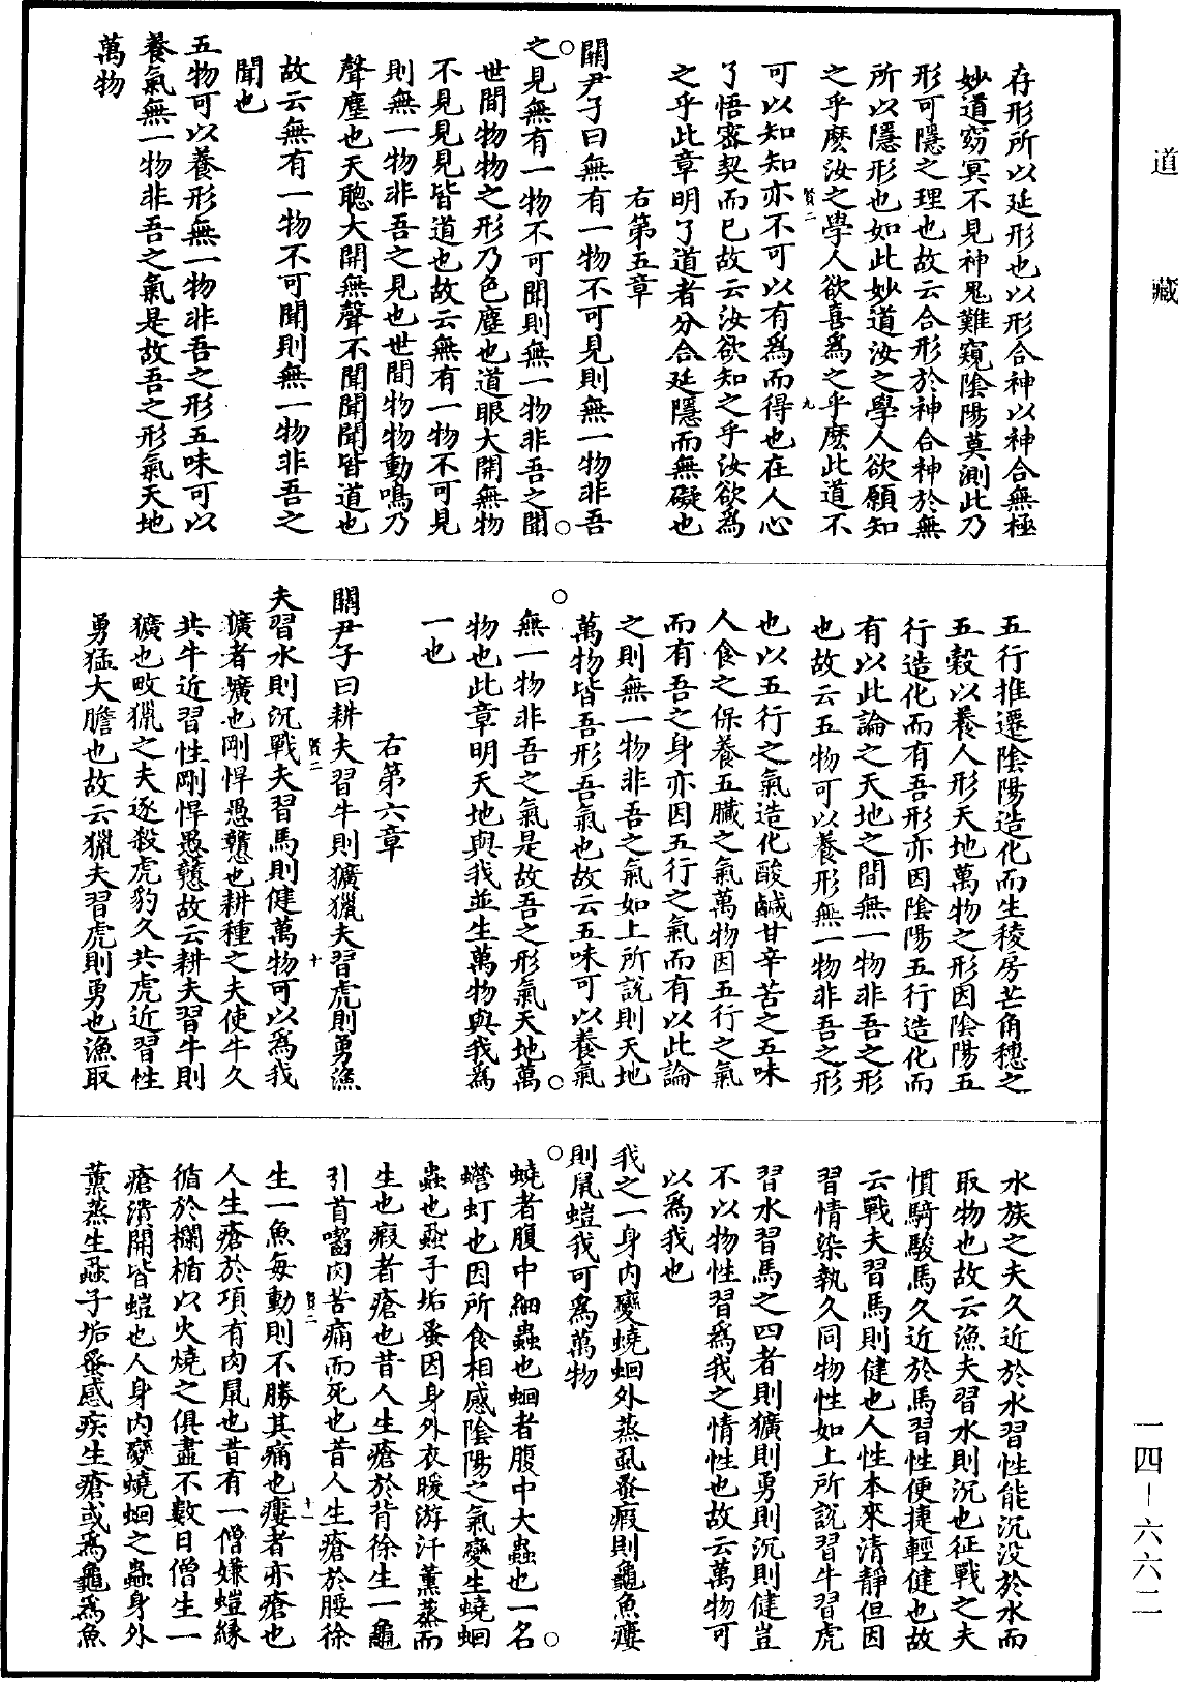 道藏
存形所以延形也以形合神以神合無極
妙道窈冥不見神鬼難窺陰陽莫測此乃
形可隱之理也故云合形於神合神於無
所以隱形也如此妙道汝之學人欲願知
之乎麽汝之學人欲喜爲之乎麽此道不
賢二
九
可以知知亦不可以有爲而得也在人心
了悟密契而已故云汝欲知之乎汝欲爲
之乎此章明了道者分合延隱而無礙也
右第五章
關尹子曰無有一物不可見則無一物非吾
之見無有一物不可聞則無一物非吾之聞
世間物物之形乃色塵也道眼大開無物
不見見見皆道也故云無有一物不可見
則無一物非吾之見也世間物物動鳴乃
聲塵也天聰大開無聲不聞聞聞皆道也
故云無有一物不可聞則無一物非吾之
聞也
五物可以養形無一物非吾之形五味可以
養氣無一物非吾之氣是故吾之形氣天地
萬物
五行推遷陰陽造化而生稜房芒角穗之
五穀以養人形天地萬物之形因陰陽五
行造化而有吾形亦因陰陽五行造化而
有以此論之天地之間無一物非吾之形
也故云五物可以養形無一物非吾之形
也以五行之氣造化酸鹹甘辛苦之五味
人食之保養五臟之氣萬物因五行之氣
而有吾之身亦因五行之氣而有以此論
之則無一物非吾之氣如上所說則天地
萬物皆吾形吾氣也故云五味可以養氣
無一物非吾之氣是故吾之形氣天地萬
物也此章明天地與我並生萬物與我爲
一也
右第六章
關尹子曰耕夫習牛則獷獵夫習虎則勇漁
賢二
十
夫習水則沉戰夫習馬則健萬物可以爲我
獷者壙也剛悍愚戇也耕種之夫使牛久
共牛近習性剛悍愚戇故云耕夫習牛則
獷也畋獵之夫逐殺虎豹久共虎近習性
勇猛大膽也故云獵夫習虎則勇也漁取
水族之夫久近於水習性能沉没於水而
取物也故云漁夫習水則沉也征戰之夫
慣騎駿馬久近於馬習性便捷輕健也故
云戰夫習馬則健也人性本來清靜但因
習情染執久同物性如上所說習牛習虎
習水習馬之四者則獷則勇則沉則健豈
不以物性習爲我之情性也故云萬物可
以爲我也
我之一身内變蟯蛔外蒸虱蚤瘕則龜魚瘻
則鼠螘我可爲萬物
蟯者腹中細蟲也蛔者腹中大蟲也一名
蟮虰也因所食相感陰陽之氣變生蟯蛔
蟲也虱子垢蚤因身外衣暖游汗薰蒸而
生也瘕者瘡也昔人生瘡於背徐生一龜
引首嚙肉苦痛而死也昔人生瘡於腰徐
賢二
十一
生一魚每動則不勝其痛也瘻者亦瘡也
人生瘡於項有肉鼠也昔有一僧嫌螘緣
循於欄楯以火燒之俱盡不數日僧生一
瘡潰開皆螘也人身内變蟯蛔之蟲身外
薰蒸生虱子垢蚤感疾生瘡或爲龜爲魚
一四－六六二